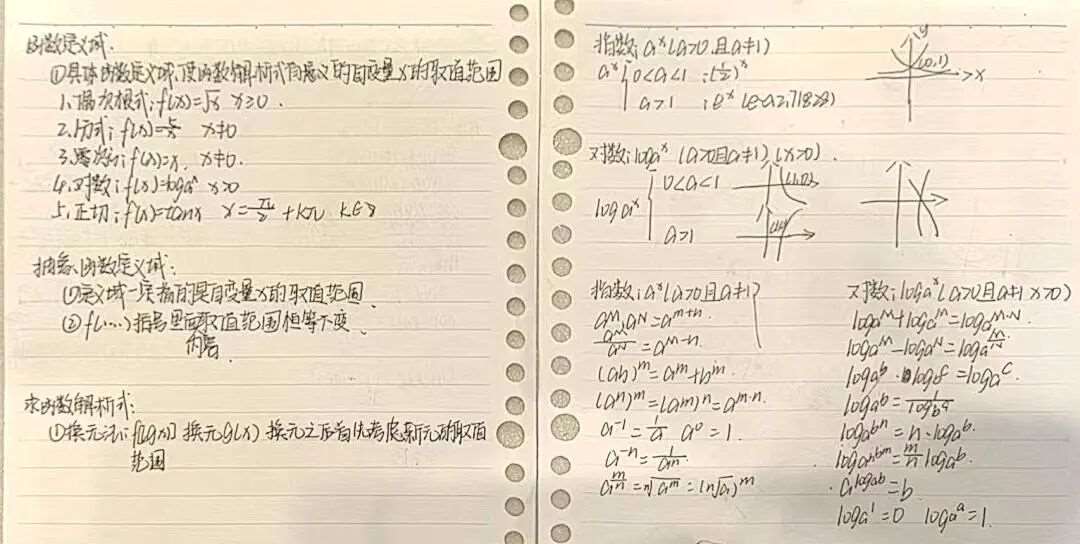 函数定义域.
①具体函数定义域:使函数解析式有意义的自变量x的取值范围
1.偶次根式:f(x)=√x x≥0.
2.分式:f(x)= x≠0
3.零次:f(x)=x. x≠0.
4.对数:f(x)=logaˣ x>0
5.正切:f(x)=tanx x=π/2+kπ k∈z
抽象函数定义域:
①定义域一定指的是自变量x的取值范围
②f(·····)括号里面取值范围恒等不变
内层.
求函数解析式:
①换元法:f[g(x)] 换元g(x) 换元之后首优考虑新元的取值
范围
指数:aˣ(a>0且a≠1)
aˣ { 0<a<1 :(1/2)ˣ
a>1 :eˣ(e≈2.71828)
y
(0,1)
>x
对数:logaˣ (a>0且a≠1)(x>0).
logaˣ { 0<a<1 (1,0)
a>1
指数:aˣ(a>0且a≠1)
aᵐ.aᴺ=aᵐ⁺ⁿ.
aᴹ/aᴺ=aᵐ⁻ⁿ.
(ab)ᵐ=aᵐ+bᵐ.
(aⁿ)ᵐ=(aᵐ)ⁿ=aᵐ·ⁿ.
a⁻¹=1/a a⁰=1.
a⁻ⁿ=1/aⁿ
a^(m/n)=ⁿ√aᵐ=(ⁿ√a)ᵐ
对数:logaˣ(a>0且a≠1 x>0)
logaᴹ+logaᵐ=logaᴹ·ᴺ
logaᴹ-logaᴺ=loga^(M/N)
logaᵇ· =logaᶜ.
logaᵇ=1/logbᵃ
logaᵇⁿ=n·logaᵇ.
logaⁿbᵐ=m/n logaᵇ.
a^(logab)=b
loga¹=0 logaᵃ=1.